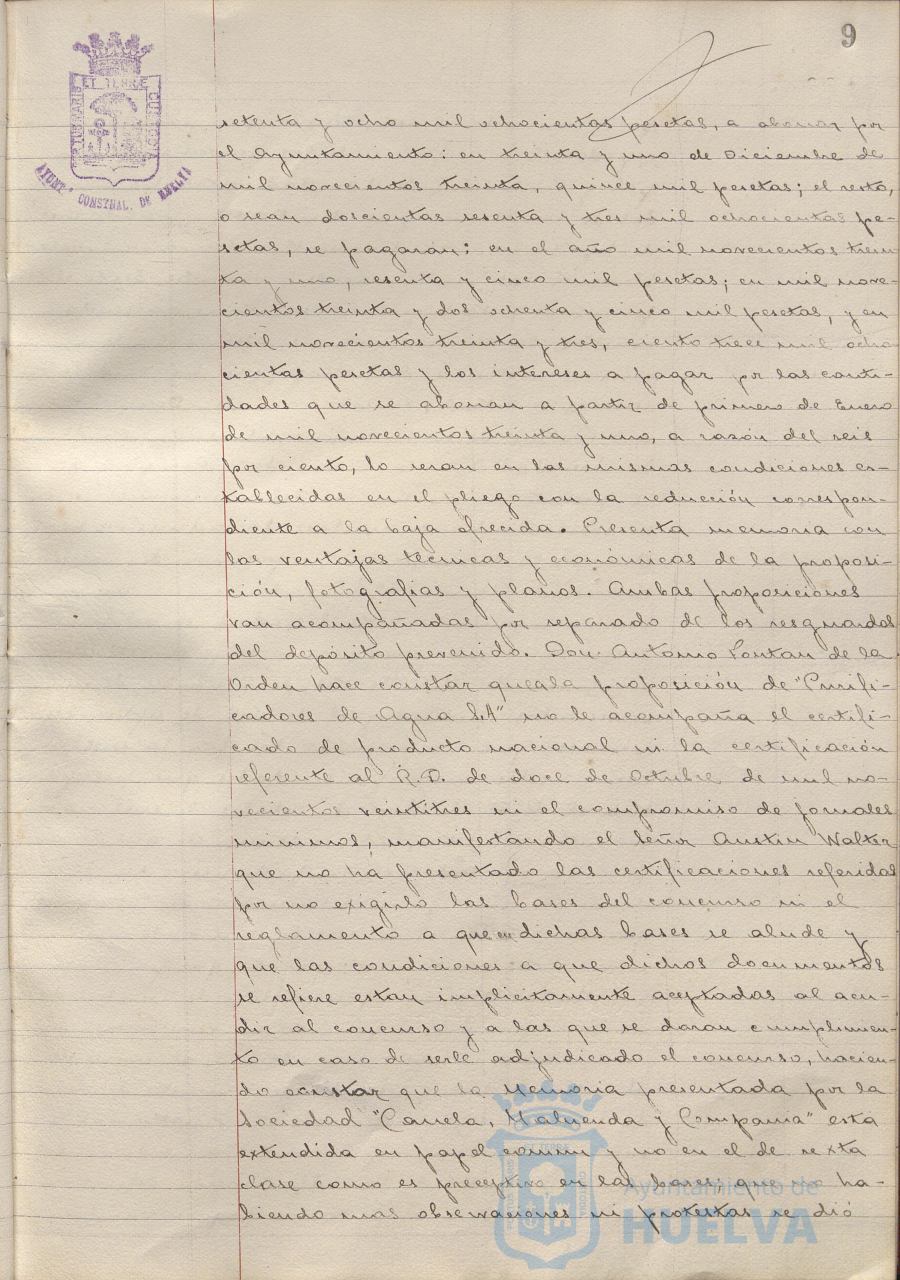 9
ET TERRE
AYUNT. CONSTNAL. DE HUELVA
setenta y ocho mil ochocientas pesetas, a abonar por
el Ayuntamiento: en treinta y uno de Diciembre de
mil novecientos treinta, quince mil pesetas; el resto,
o sean doscientas sesenta y tres mil ochocientas pe-
setas, se pagaran: en el año mil novecientos trein
ta y uno, sesenta y cinco mil pesetas; en mil nove-
cientos treinta y dos ochenta y cinco mil pesetas, y en
mil novecientos treinta y tres, ciento trece mil ocho
cientas pesetas y los intereses a pagar por las canti-
dades que se abonan a partir de primero de Enero
de mil novecientos treinta y uno, a razón del seis
por ciento, lo seran en las mismas condiciones es-
tablecidas en el pliego con la reducción correspon-
diente a la baja ofrecida. Presenta memoria con
las ventajas técnicas y económicas de la proposi-
ción, fotografias y planos. Ambas proposiciones
van acompañadas por separado de los resguardos
del depósito prevenido. Don Antonio de la
Orden hace constar que a la proposición de "Purifi-
cadores de Agua S.A" no le acompaña el certifi-
cado de producto nacional ni la certificación
referente al R.D. de doce de Octubre de mil no-
vecientos veintitres ni el compromiso de jornales
minimos, manifestando el Señor Austin Walter
que no ha presentado las certificaciones referidas
por no exigirlo las bases del concurso ni el
reglamento a que en dichas bases se alude y
que las condiciones a que dichos documentos
se refiere estan implicitamente aceptadas al acu-
dir al concurso y a las que se daran cumplimien-
to en caso de serle adjudicado el concurso, hacien-
do constar que la Memoria presentada por la
Sociedad "Canela, Maluenda y Compania" está
extendida en papel comun y no en el de sexta
clase como es preceptivo en las bases; que no ha-
biendo mas observaciones ni protestas se dió
Ayuntamiento de
HUELVA